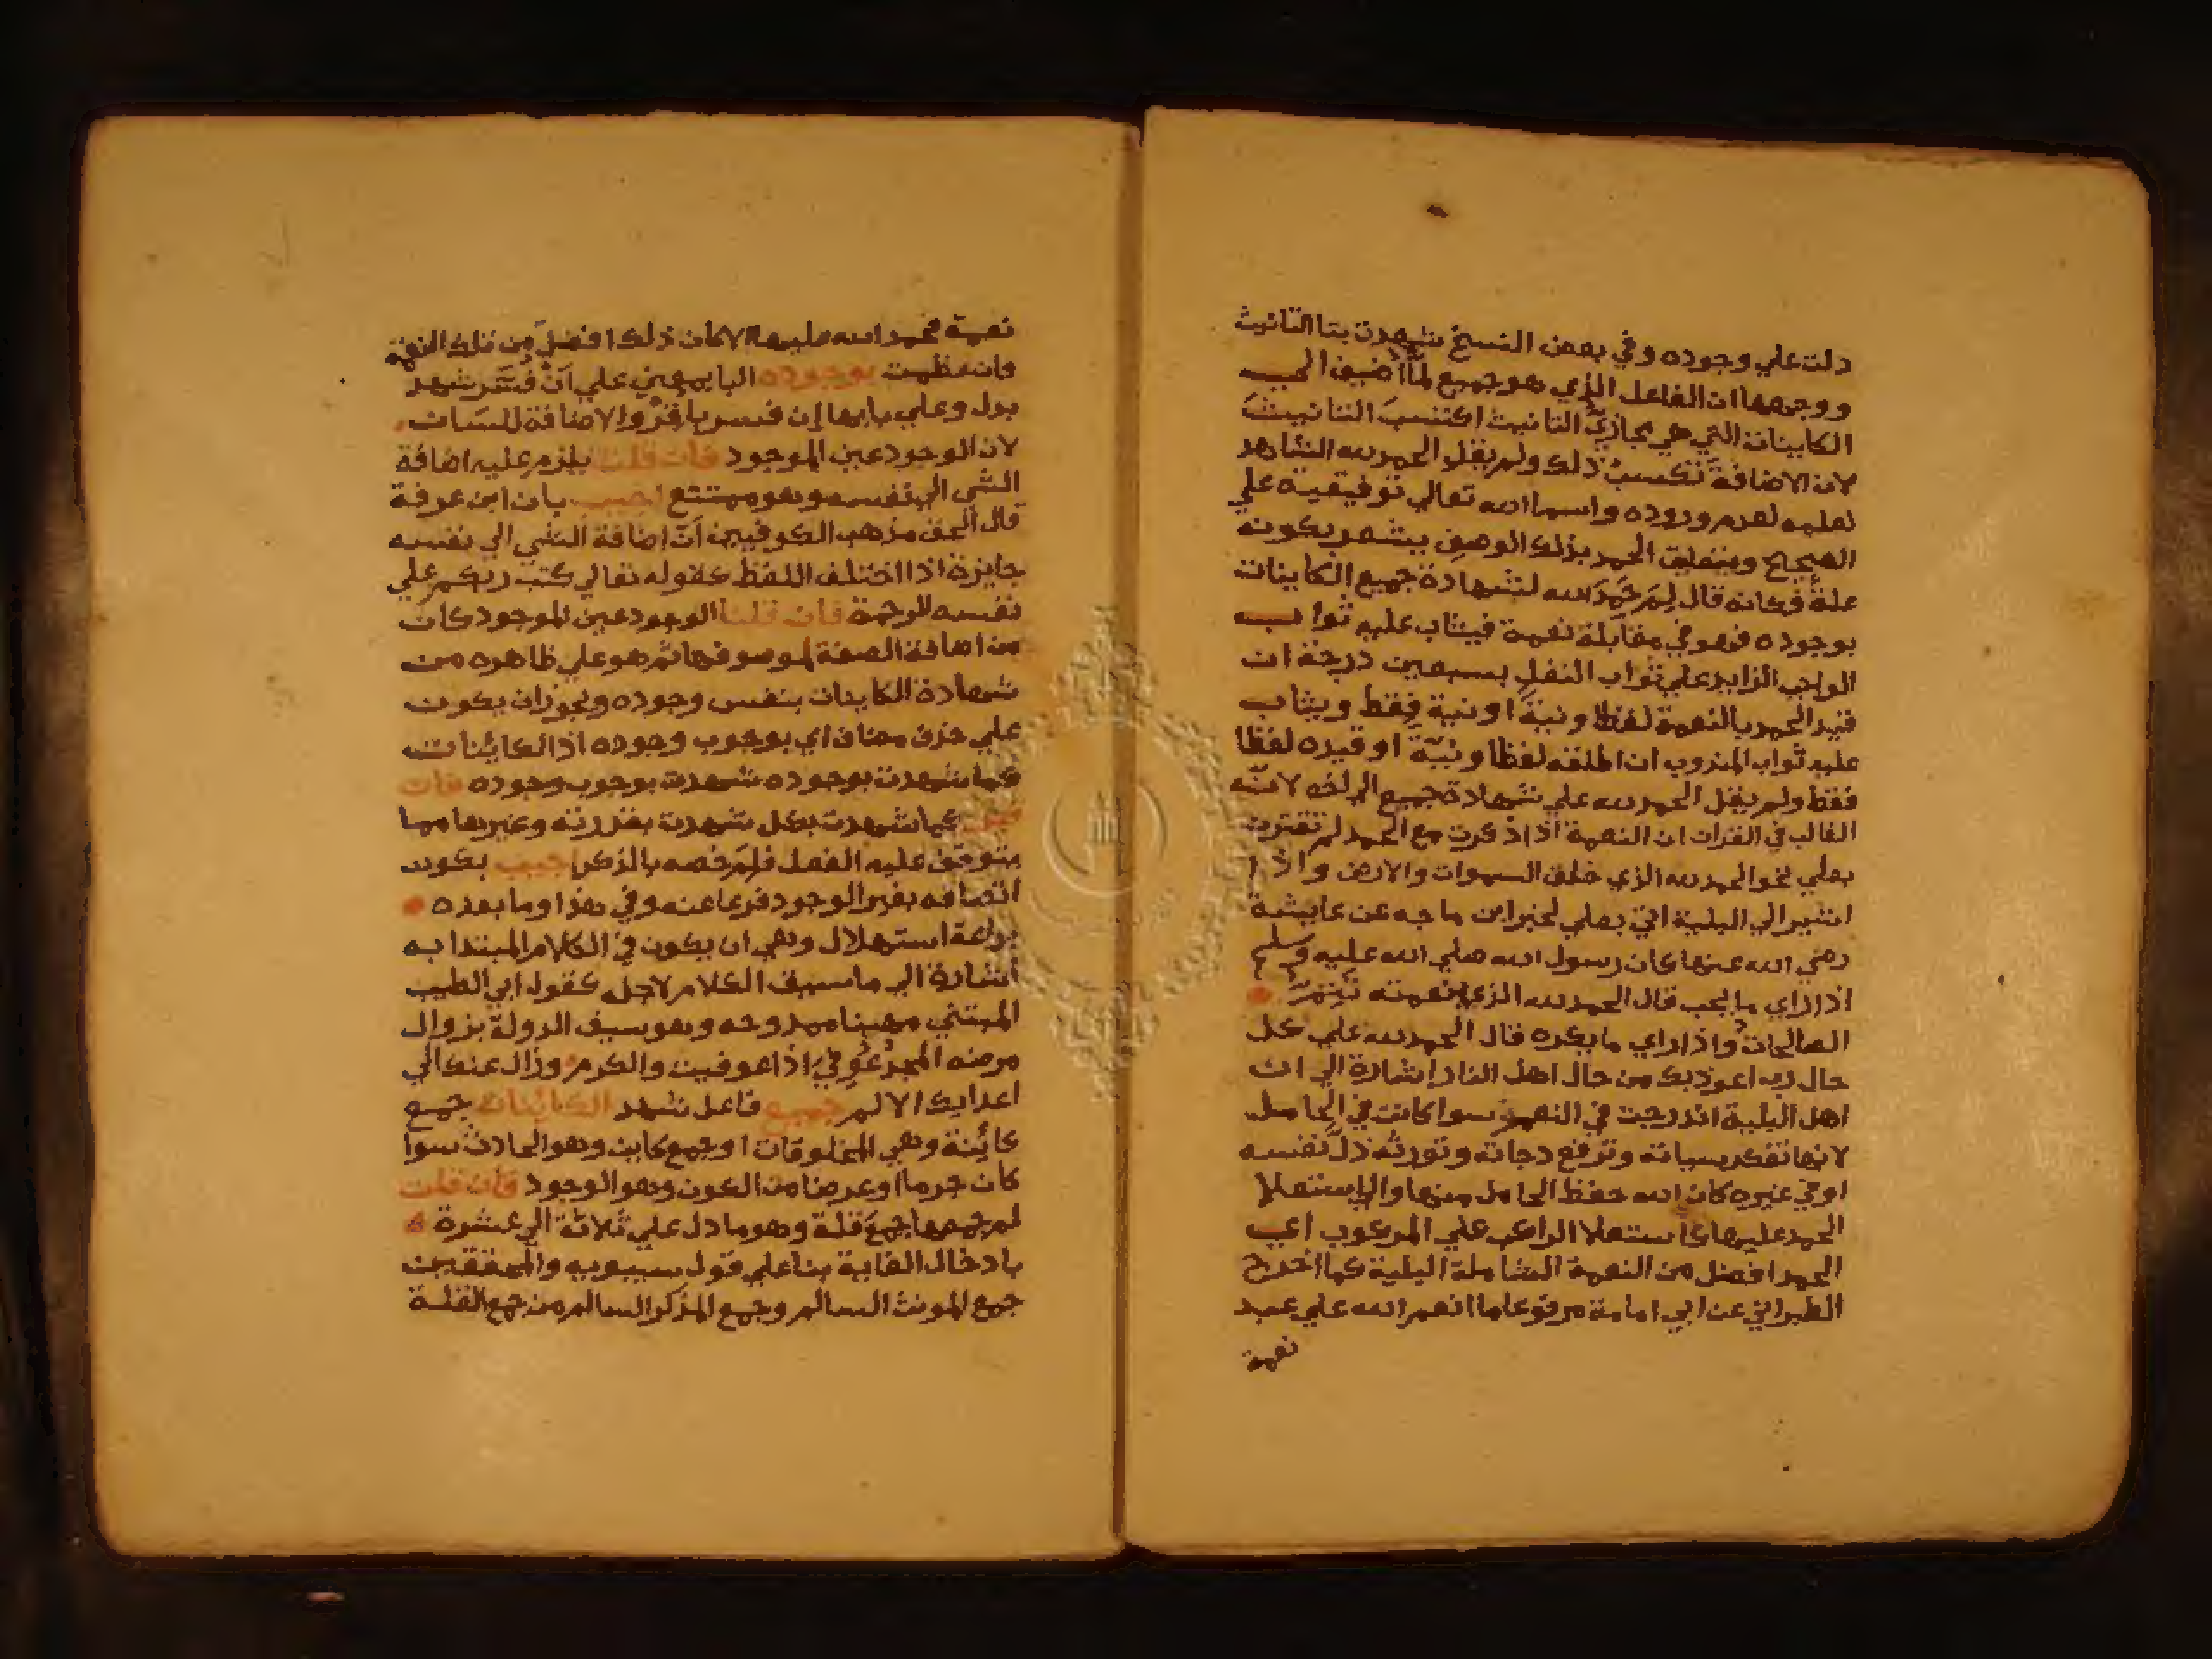 دلت علي وجوده وفي بعض النسخ شهدت بتا التانيث
ووجهها ان الفاعل الذي هو جميع لمّا أضيف الي
الكاينات التي هي مجازيّ التانيث اكتسبَ التانيثَ
لان الاضافة تكسبُ ذلك ولم يقل الحمد لله الشاهد
لعلمه لعدم وروده واسما الله تعالي توقيفية علي
الصحيح وبتعليق الحمد بذلك الوصف يشعر بكونه
علة فكانه قال لِمَ حَمِدَ الله لشهادة جميع الكاينات
بوجوده فهو في مقابلة نعمة فيثاب عليه ثواب
الواجب الزايد علي ثواب النفل بسبعين درجة ان
قيد الحمد بالنعمة لفظا ونيةً او نيةً فقط ويثاب
عليه ثواب المندوب ان اطلقه لفظا ونيّة او قيده لفظا
فقط ولم يقل الحمد لله علي شهادة جميع الي اخره لانّه
الغالب في القران ان النعمة اذا ذكرت مع الحمد لم تقترن
بعلي نحو الحمد لله الذي خلق السموات والارض واذا
اشير الي البلية اتي بعلي لخبر ابن ماجه عن عايشة
رضي الله عنها كان رسول الله صلي الله عليه وسلم
اذا راي ما يحب قال الحمد لله الذي بنعمته تَتِمّ
الصالحاتُ واذا راي ما يكره قال الحمد لله علي كل
حال ربه اعوذ بك من حال اهل النار اشارة الي ان
اهل البلية اندرجت في النعمة سوا كانت في الحامل
لانها تفكر سياته وترفع دجاته وتورثه ذل نفسه
او في غيره كان الله حفظ الحامل منها والي استعلا
الحمد عليها كاستعلا الراكب علي المركوب اي
الحمد افضل من النعمة الشاملة البلية كما اخرج
الطبراني عن ابي امامة مرفوعا ما انعم الله علي عبد
نعمة
نعمة فحمد الله عليها الا كان ذلك افضلَ من تلك النعمة
وان عظمت بوجوده البا بمعني علي انْ فُسِّر شهد
بدل وعلي بابها إن فسر باقرّ والاضافة للبيان
لان الوجود عين الموجود فان قلت يلزم عليه اضافة
الشي الي نفسه وهو ممتنع اجيب بان ابن عرفة
قال الحق مذهب الكوفيين انّ اضافة الشي الي نفسه
جايزة اذا اختلف اللفظ كقوله تعالي كتب ربكم علي
نفسه الرحمة فان قلنا الوجود عين الموجود كان
من اضافة الصفة لموصوفها ثم هو علي ظاهره من
شهادة الكاينات بنفس وجوده ويجوز ان يكون
علي حذف مضاف اي بوجوب وجوده اذ الكائنات
كما شهدت بوجوده شهدت بوجوب وجوده فان
قيل كما شهدت بكل شهدت بقدرته وغيرها مما
يتوقف عليه الفعل فلِمَ خصه بالذكر اجيب بكون
اتصافه بغير الوجود فرعا عنه وفي هذا وما بعده
براعة استهلال وهي ان يكون في الكلام المبتدا به
اشارة الي ما سيق الكلام لاجله كقول ابي الطيب
المتنبي مهينا ممدوحه وهو سيف الدولة بزوال
مرضه المجدُ عُوفيَ اذا عوفيت والكرم وزال عنك الي
اعدايك الالم جميع فاعل شهد الكائنات جمع
كائنة وهي المخلوقات او جمع كاين وهو الحادث سوا
كان جرما او عرضا من الكون وهو الوجود فان قلت
لم جمعها جمعَ قلة وهو ما دل علي ثلاثة الي عشرة
بادخال الغاية بنا علي قول سيبويه والمحققين
جمع المونث السالم وجمع المذكر السالم من جمع القلة